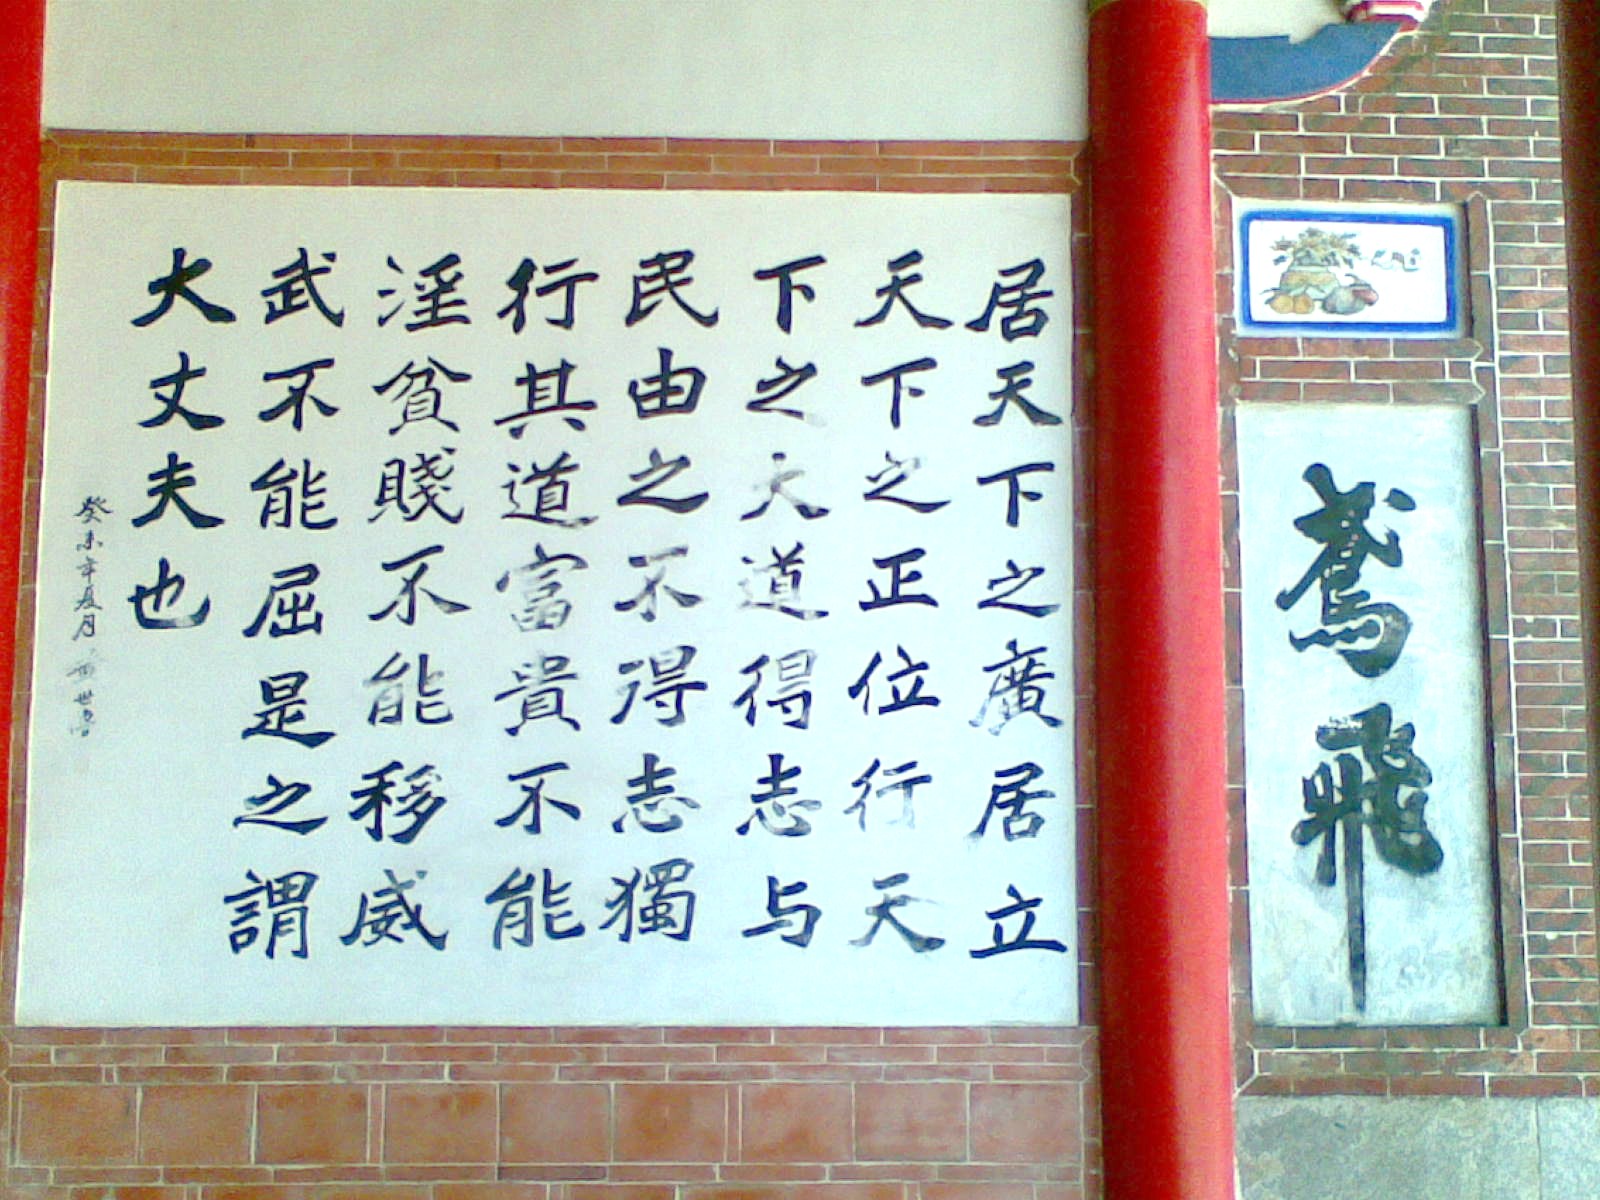 鳶飛
居天下之廣居立
天下之正位行天
下之大道得志与
民由之不得志獨
行其道富貴不能
淫貧賤不能移威
武不能屈是之謂
大丈夫也
癸未年夏月